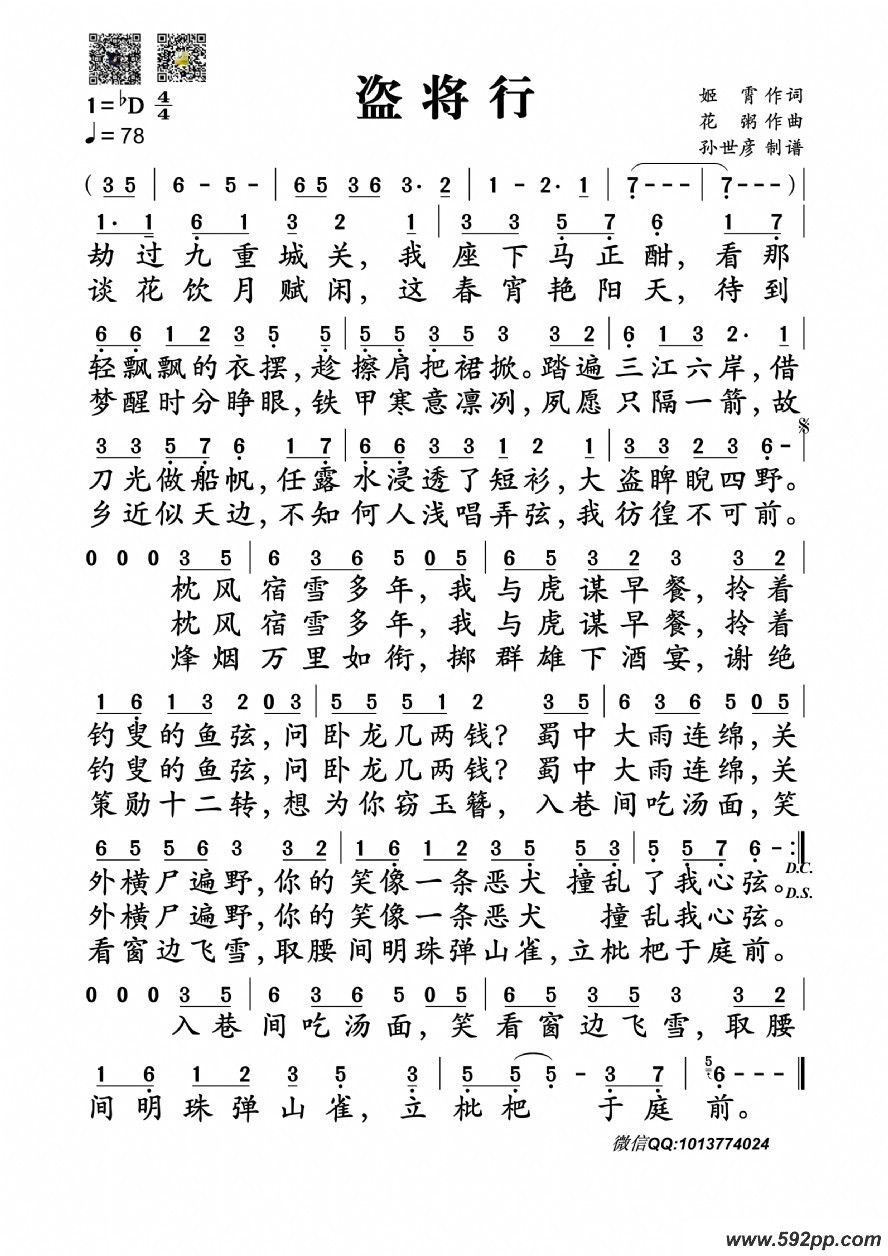 盗将行
1=♭D 4/4
♩=78
姬 霄 作词
花 粥 作曲
孙世彦 制谱
( 3 5 | 6 - 5 - | 6 5 3 6 3· 2 | 1 - 2· 1 | 7 - - - | 7 - - - ) |
1· 1 6 1 3 2 1 | 3 3 5 7 6 1 7 |
劫过九重城关，我座下马正酣，看那
谈花饮月赋闲，这春宵艳阳天，待到
6 6 1 2 3 5 5 | 5 5 3 5 3 3 2 | 6 1 3 2· 1 |
轻飘飘的衣摆，趁擦肩把裙掀。踏遍三江六岸，借
梦醒时分睁眼，铁甲寒意凛冽，夙愿只隔一箭，故
3 3 5 7 6 1 7 | 6 6 3 3 1 2 1 | 3 3 2 3 6 - |
刀光做船帆，任露水浸透了短衫，大盗睥睨四野。
乡近似天边，不知何人浅唱弄弦，我彷徨不可前。
0 0 0 3 5 | 6 3 6 5 0 5 | 6 5 3 2 3 3 2 |
枕风宿雪多年，我与虎谋早餐，拎着
枕风宿雪多年，我与虎谋早餐，拎着
烽烟万里如衔，掷群雄下酒宴，谢绝
1 6 1 3 2 0 3 | 5 5 5 1 2 3 5 | 6 3 6 5 0 5 |
钓叟的鱼弦，问卧龙几两钱？蜀中大雨连绵，关
钓叟的鱼弦，问卧龙几两钱？蜀中大雨连绵，关
策勋十二转，想为你窃玉簪，入巷间吃汤面，笑
6 5 5 6 3 3 2 | 1 6 1 2 3 5 5 3 | 5 5 7 6 - :|
外横尸遍野，你的笑像一条恶犬 撞乱了我心弦。
D.C.
D.S.
外横尸遍野，你的笑像一条恶犬 撞乱我心弦。
看窗边飞雪，取腰间明珠弹山雀，立枇杷于庭前。
0 0 0 3 5 | 6 3 6 5 0 5 | 6 5 3 5 3 3 2 |
入巷间吃汤面，笑看窗边飞雪，取腰
1 6 1 2 3 5 3 | 5 5 5 - 3 7 | 5 6 - - - ‖
间明珠弹山雀，立枇杷 于庭前。
微信QQ:1013774024
www.592pp.com